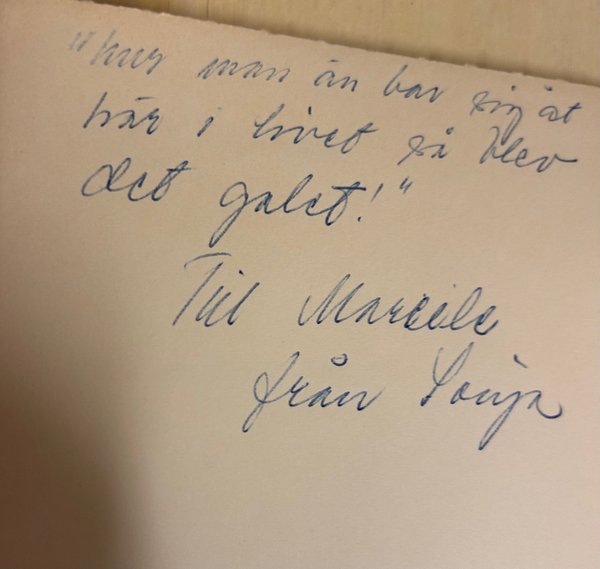 "hur man än bar sig åt
här i livet så blev
det galet!"
Till Marcele
från Sonja